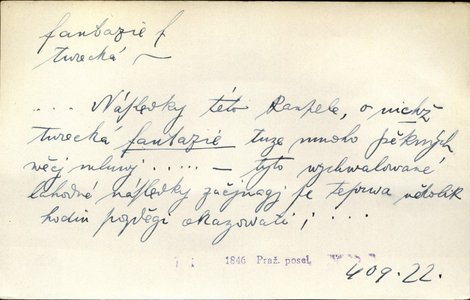 fantazie f
turecká ~
... Následky této kampele, o nichž
turecká fantazie tuze mnoho pěkných
wěcj mluwj ..... — tyto wychwalowané
lahodné následky začjnagj se teprwa několik
hodin pozděgi okazowati; ...
1846 Praž. posel.
409.22.